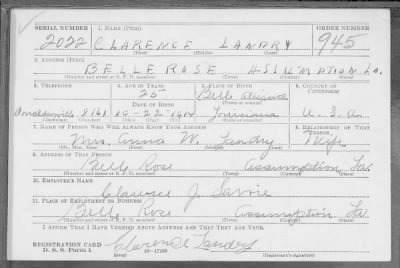 SERIAL NUMBER 1. NAME (Print) ORDER NUMBER
2022 CLARENCE LANDRY 945
(First) (Middle) (Last)
2. ADDRESS (Print)
BELLE ROSE ASSUMPTION LA.
(Number and street or R. F. D. number) (Town) (County) (State)
3. TELEPHONE 4. AGE IN YEARS 5. PLACE OF BIRTH 6. COUNTRY OF CITIZENSHIP
25 Belle Alliance
DATE OF BIRTH (Town or county)
Donaldsonville 8161 10-22 1914 Louisiana U. S. A.
(Exchange) (Number) (Mo.) (Day) (Yr.) (State or country)
7. NAME OF PERSON WHO WILL ALWAYS KNOW YOUR ADDRESS 8. RELATIONSHIP OF THAT PERSON
Mrs. Anna W. Landry Wife
(Mr., Mrs., Miss) (First) (Middle) (Last)
9. ADDRESS OF THAT PERSON
Belle Rose Assumption La.
(Number and street or R. F. D. number) (Town) (County) (State)
10. EMPLOYER'S NAME
Clarence J. Savoie
11. PLACE OF EMPLOYMENT OR BUSINESS
Belle Rose Assumption La.
(Number and street or R. F. D. number) (Town) (County) (State)
I AFFIRM THAT I HAVE VERIFIED ABOVE ANSWERS AND THAT THEY ARE TRUE.
REGISTRATION CARD
D. S. S. Form 1 16-17105 Clarence Landry
(Registrant's signature)